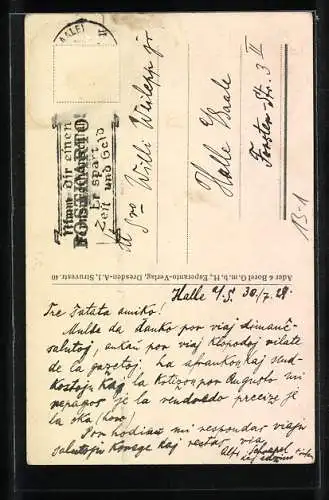 HALLE
Nimm dir einen
POSTSCHECKKONTO!
Er spart
Zeit und Geld
Al S-ro Willi
Halle Saale
Forster-Str. 3 II
13-1
Ader & Borel G. m. b. H., Esperanto-Verlag, Dresden-A. 1, Struvestr. 40
Halle a/S. 30./7. 29.
Tre ŝatata amiko!
Multe da danko por viaj dimanĉ-
salutoj, ankaŭ por viaj klopodoj rilate
de la gazetoj. La afrankon kaj send-
kostojn kaj la por Aŭgusto mi
repagos je la vendredo precize je
la oka (horo)
Por hodiaŭ mi respondas viajn
salutojn kaj restas via